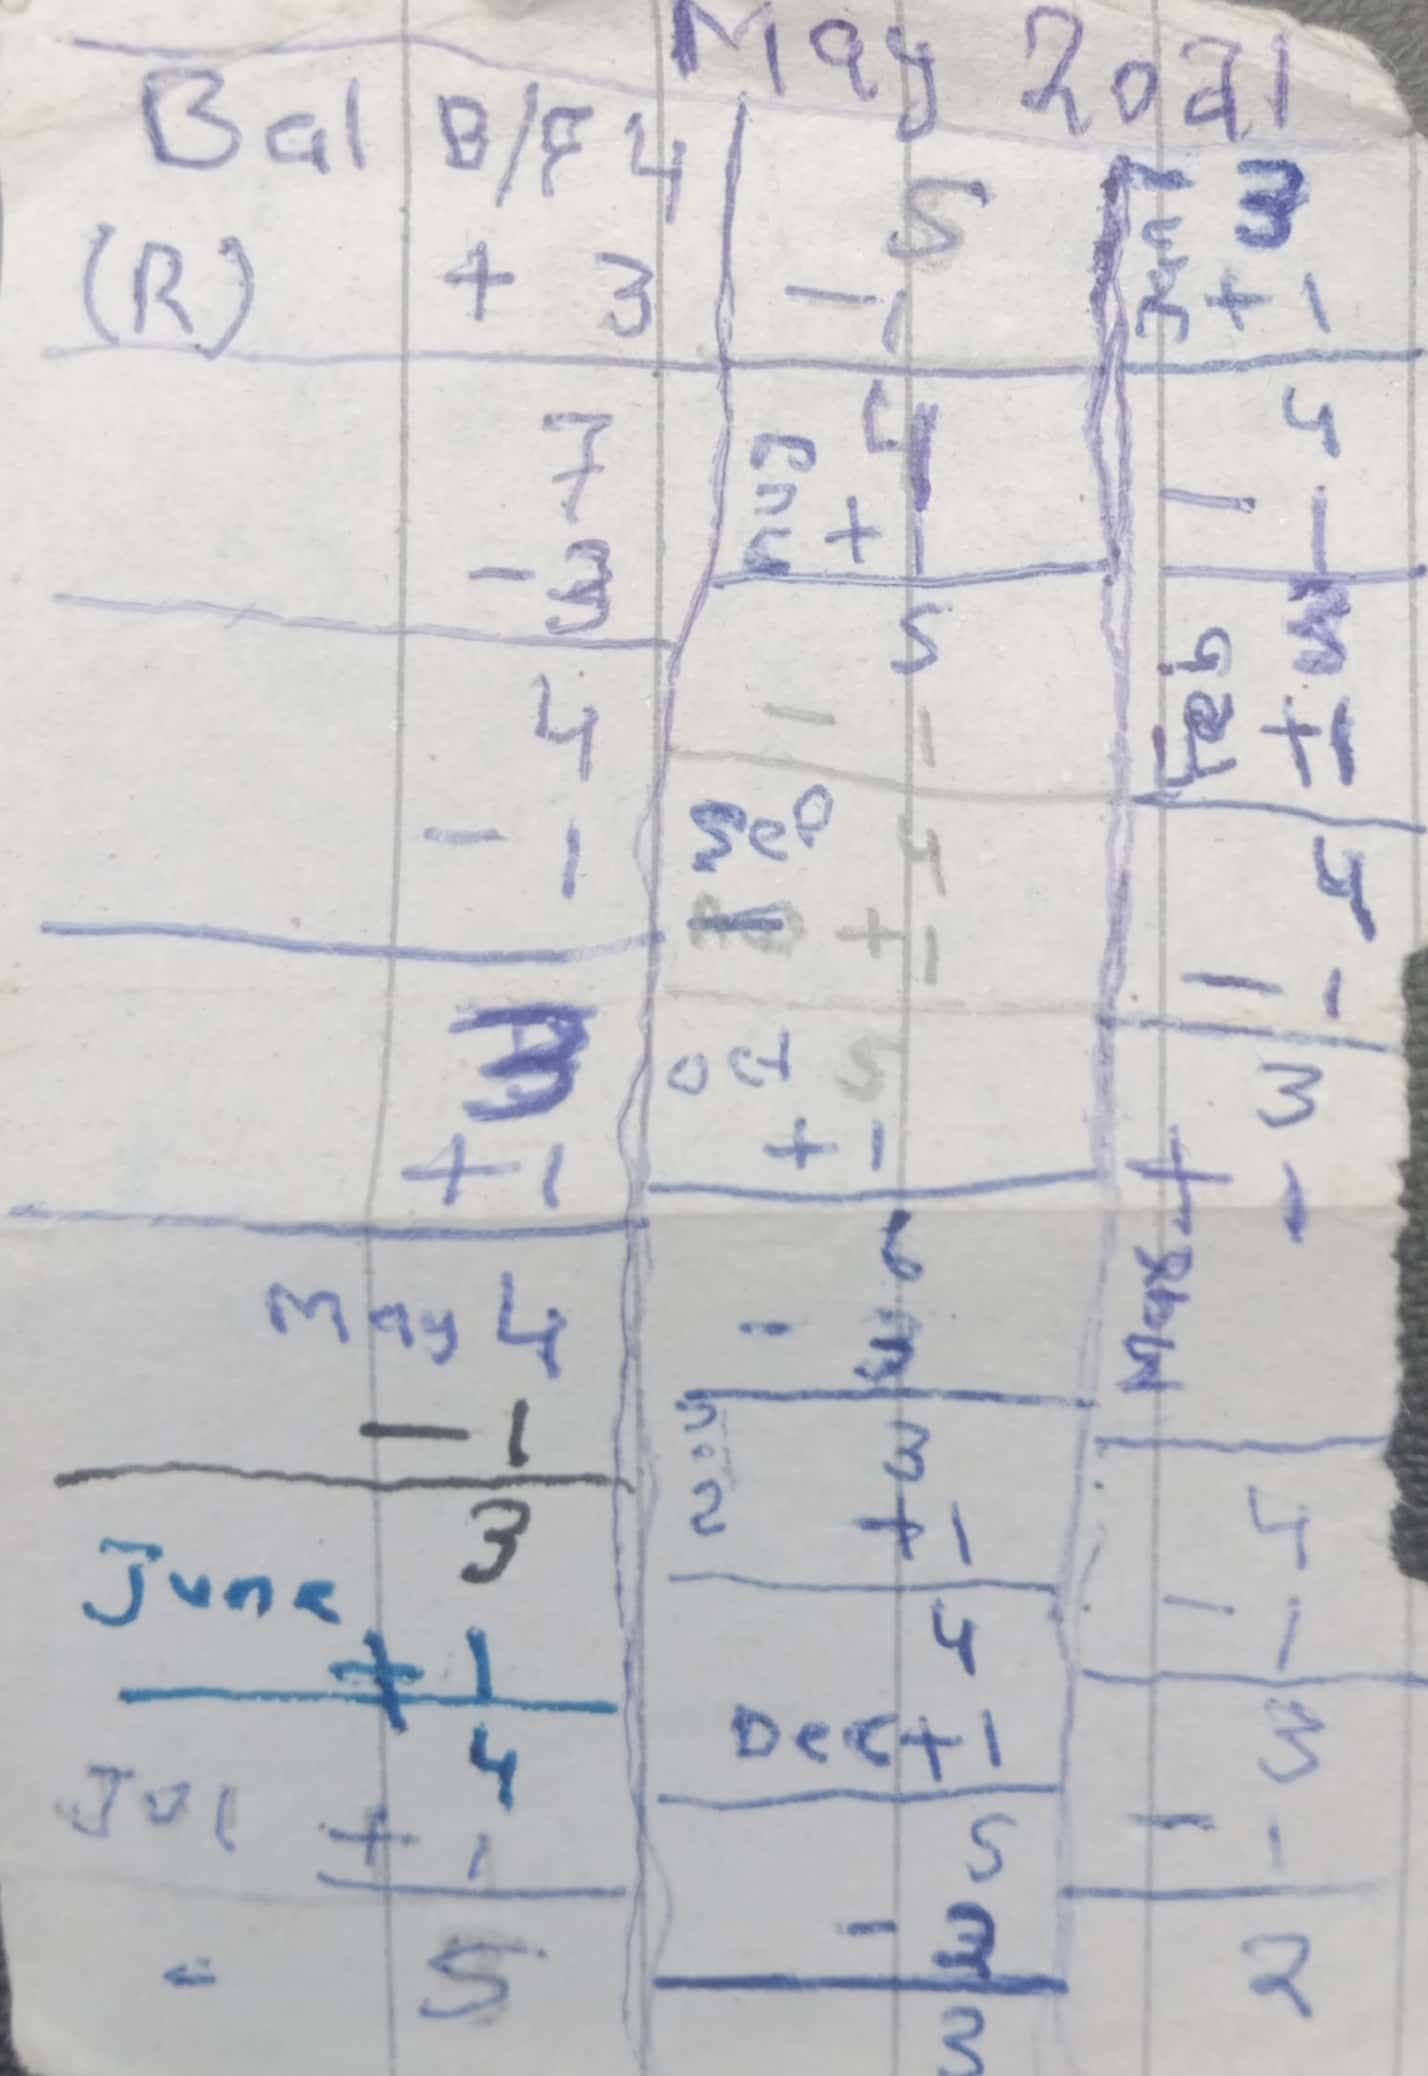 May 2021
Bal B/F 4
(R) + 3
7
- 3
4
- 1
3
+ 1
May 4
- 1
3
June
+ 1
4
Jul + 1
5
5
- 1
4
+ 1
5
- 1
Sep 4
+ 1
oct 5
+ 1
6
- 3
3
+ 1
4
Dec + 1
5
3
3
+ 1
4
- 1
3
Feb + 1
4
- 1
3
+ 1
Mar
4
- 1
3
- 1
2